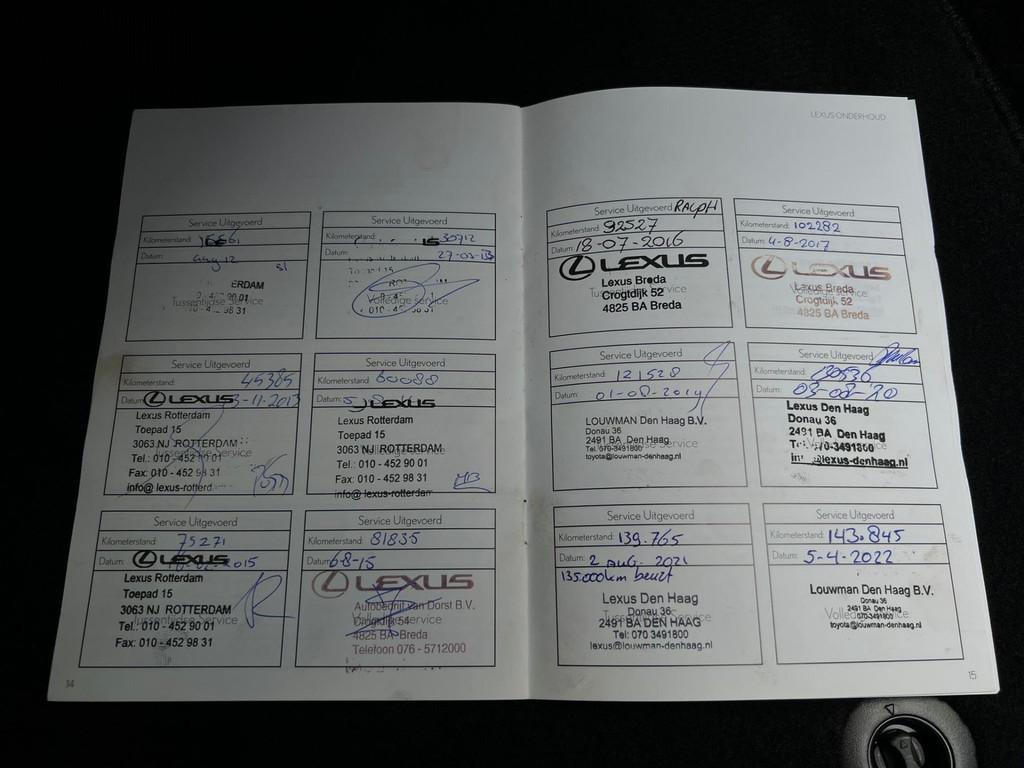 LEXUS ONDERHOUD
Service Uitgevoerd
Kilometerstand:
Datum: aug 12
ERDAM
Tussentijdse Service
Service Uitgevoerd
Kilometerstand: 30712
27-03-13
Volledige service
Service Uitgevoerd
Kilometerstand: 45385
Datum: LEXUS 3-11-2013
Lexus Rotterdam
Toepad 15
3063 NJ ROTTERDAM
Tel.: 010 - 452 90 01
Fax: 010 - 452 98 31
info@lexus-rotterd
Service Uitgevoerd
Kilometerstand: 60088
Datum: LEXUS
Lexus Rotterdam
Toepad 15
3063 NJ ROTTERDAM
Tel.: 010 - 452 90 01
Fax: 010 - 452 98 31
info@lexus-rotterdam
Service Uitgevoerd
Kilometerstand: 75271
Datum: LEXUS 2015
Lexus Rotterdam
Toepad 15
3063 NJ ROTTERDAM
Tussentijdse Service
Tel.: 010 - 452 90 01
Fax: 010 - 452 98 31
Service Uitgevoerd
Kilometerstand: 81835
Datum: 6-8-15
LEXUS
Autobedrijf van Dorst B.V.
Volledige service
Crogtdijk 54
4825 BA Breda
Telefoon 076 - 5712000
14
Service Uitgevoerd RALPH
Kilometerstand: 92527
Datum: 18-07-2016
LEXUS
Lexus Breda
Crogtdijk 52
4825 BA Breda
Service Uitgevoerd
Kilometerstand: 102282
Datum: 4-8-2017
LEXUS
Lexus Breda
Volledige service
Crogtdijk 52
4825 BA Breda
Service Uitgevoerd
Kilometerstand: 121528
Datum: 01-08-2019
LOUWMAN Den Haag B.V.
Donau 36
2491 BA Den Haag
Tel: 070-3491800
toyota@louwman-denhaag.nl
Service Uitgevoerd
Kilometerstand: 130530
Datum: 03-08-'20
Lexus Den Haag
Donau 36
2491 BA Den Haag
Tel: 070-3491800
lexus-denhaag.nl
Service Uitgevoerd
Kilometerstand: 139.765
Datum: 2 AUG. 2021
135000km beurt
Lexus Den Haag
Donau 36
2491 BA DEN HAAG
Tel: 070 3491800
lexus@louwman-denhaag.nl
Service Uitgevoerd
Kilometerstand: 143.845
Datum: 5-4-2022
Louwman Den Haag B.V.
Donau 36
2491 BA Den Haag
070-3491800
toyota@louwman-denhaag.nl
15